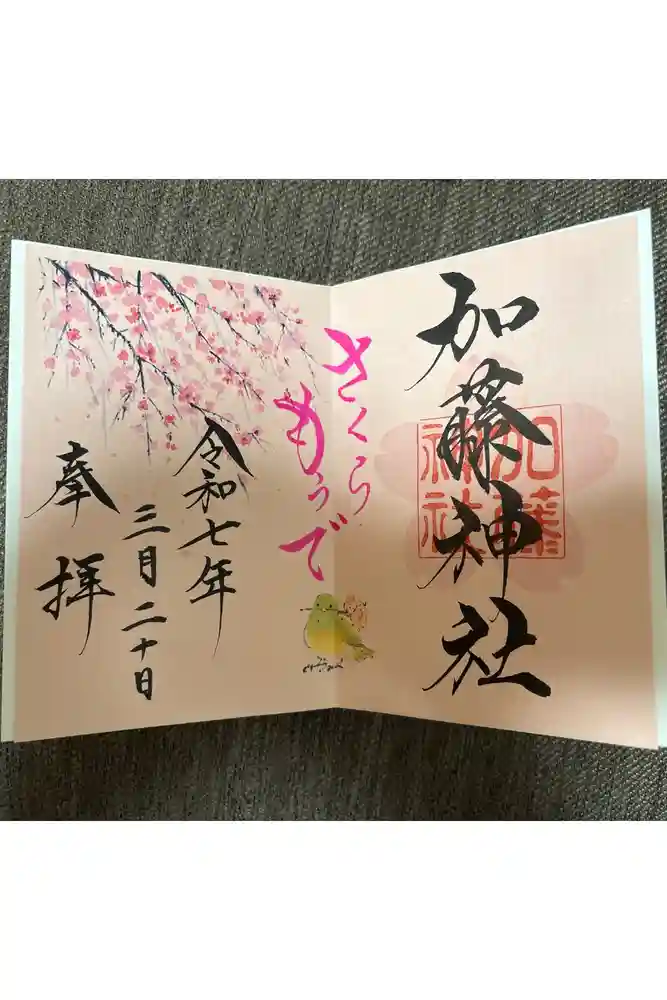 加藤神社
加藤
神社
さくら
もうで
令和七年
三月二十日
奉拝